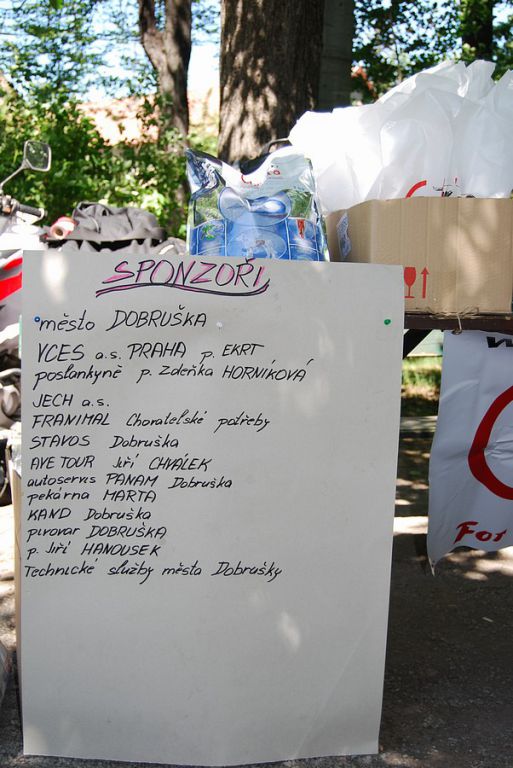 SPONZOŘI
město DOBRUŠKA
VCES a.s. PRAHA p. EKRT
poslankyně p. Zdeňka HORNÍKOVÁ
JECH a.s.
FRANIMAL Chovatelské potřeby
STAVOS Dobruška
AVE TOUR Jiří CHVÁLEK
autoservis PANAM Dobruška
pekárna MARTA
KAND Dobruška
pivovar DOBRUŠKA
p. Jiří HANOUSEK
Technické služby města Dobrušky
For